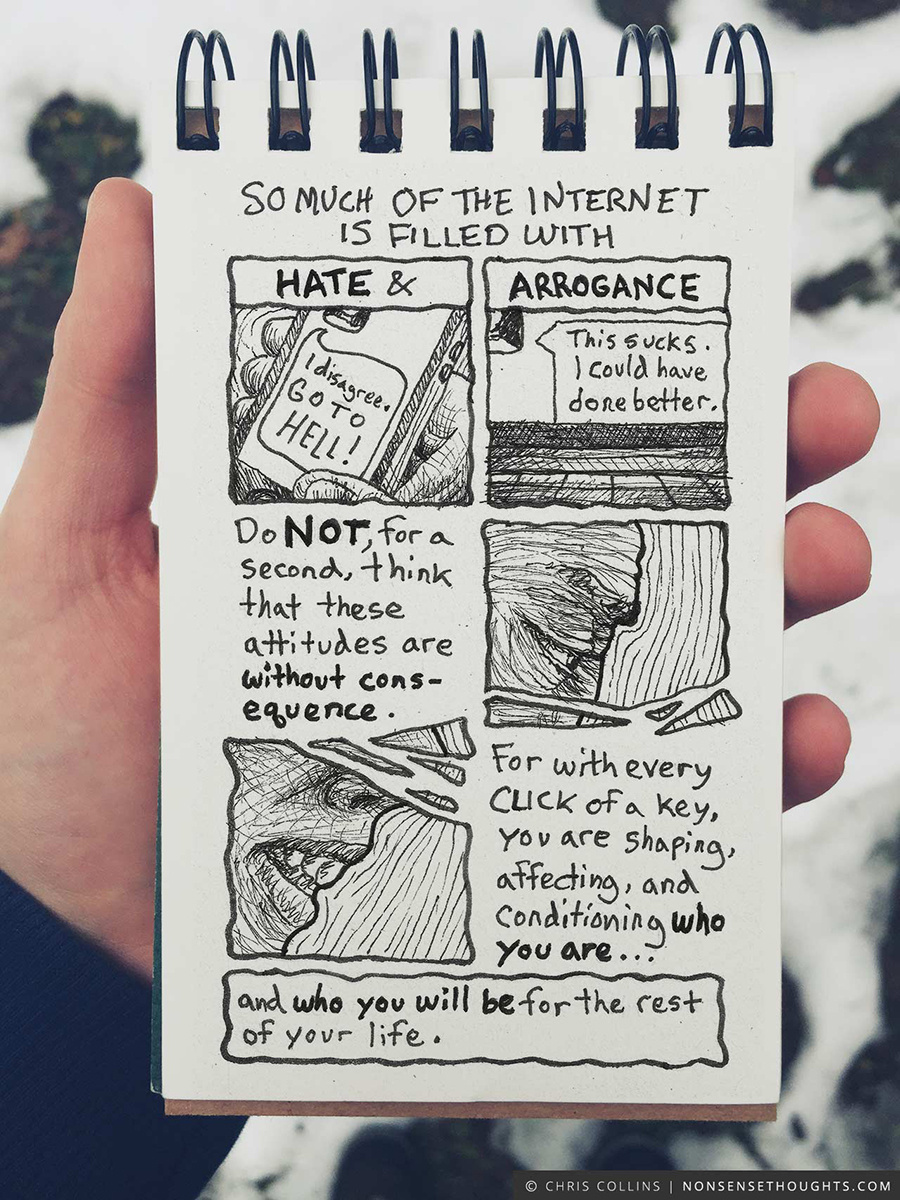 SO MUCH OF THE INTERNET
IS FILLED WITH
HATE &
I disagree.
GO TO
HELL!
ARROGANCE
This sucks.
I could have
done better.
Do NOT, for a
second, think
that these
attitudes are
without cons-
equence.
For with every
CLICK of a key,
you are shaping,
affecting, and
conditioning who
you are...
and who you will be for the rest
of your life.
© CHRIS COLLINS | NONSENSETHOUGHTS.COM